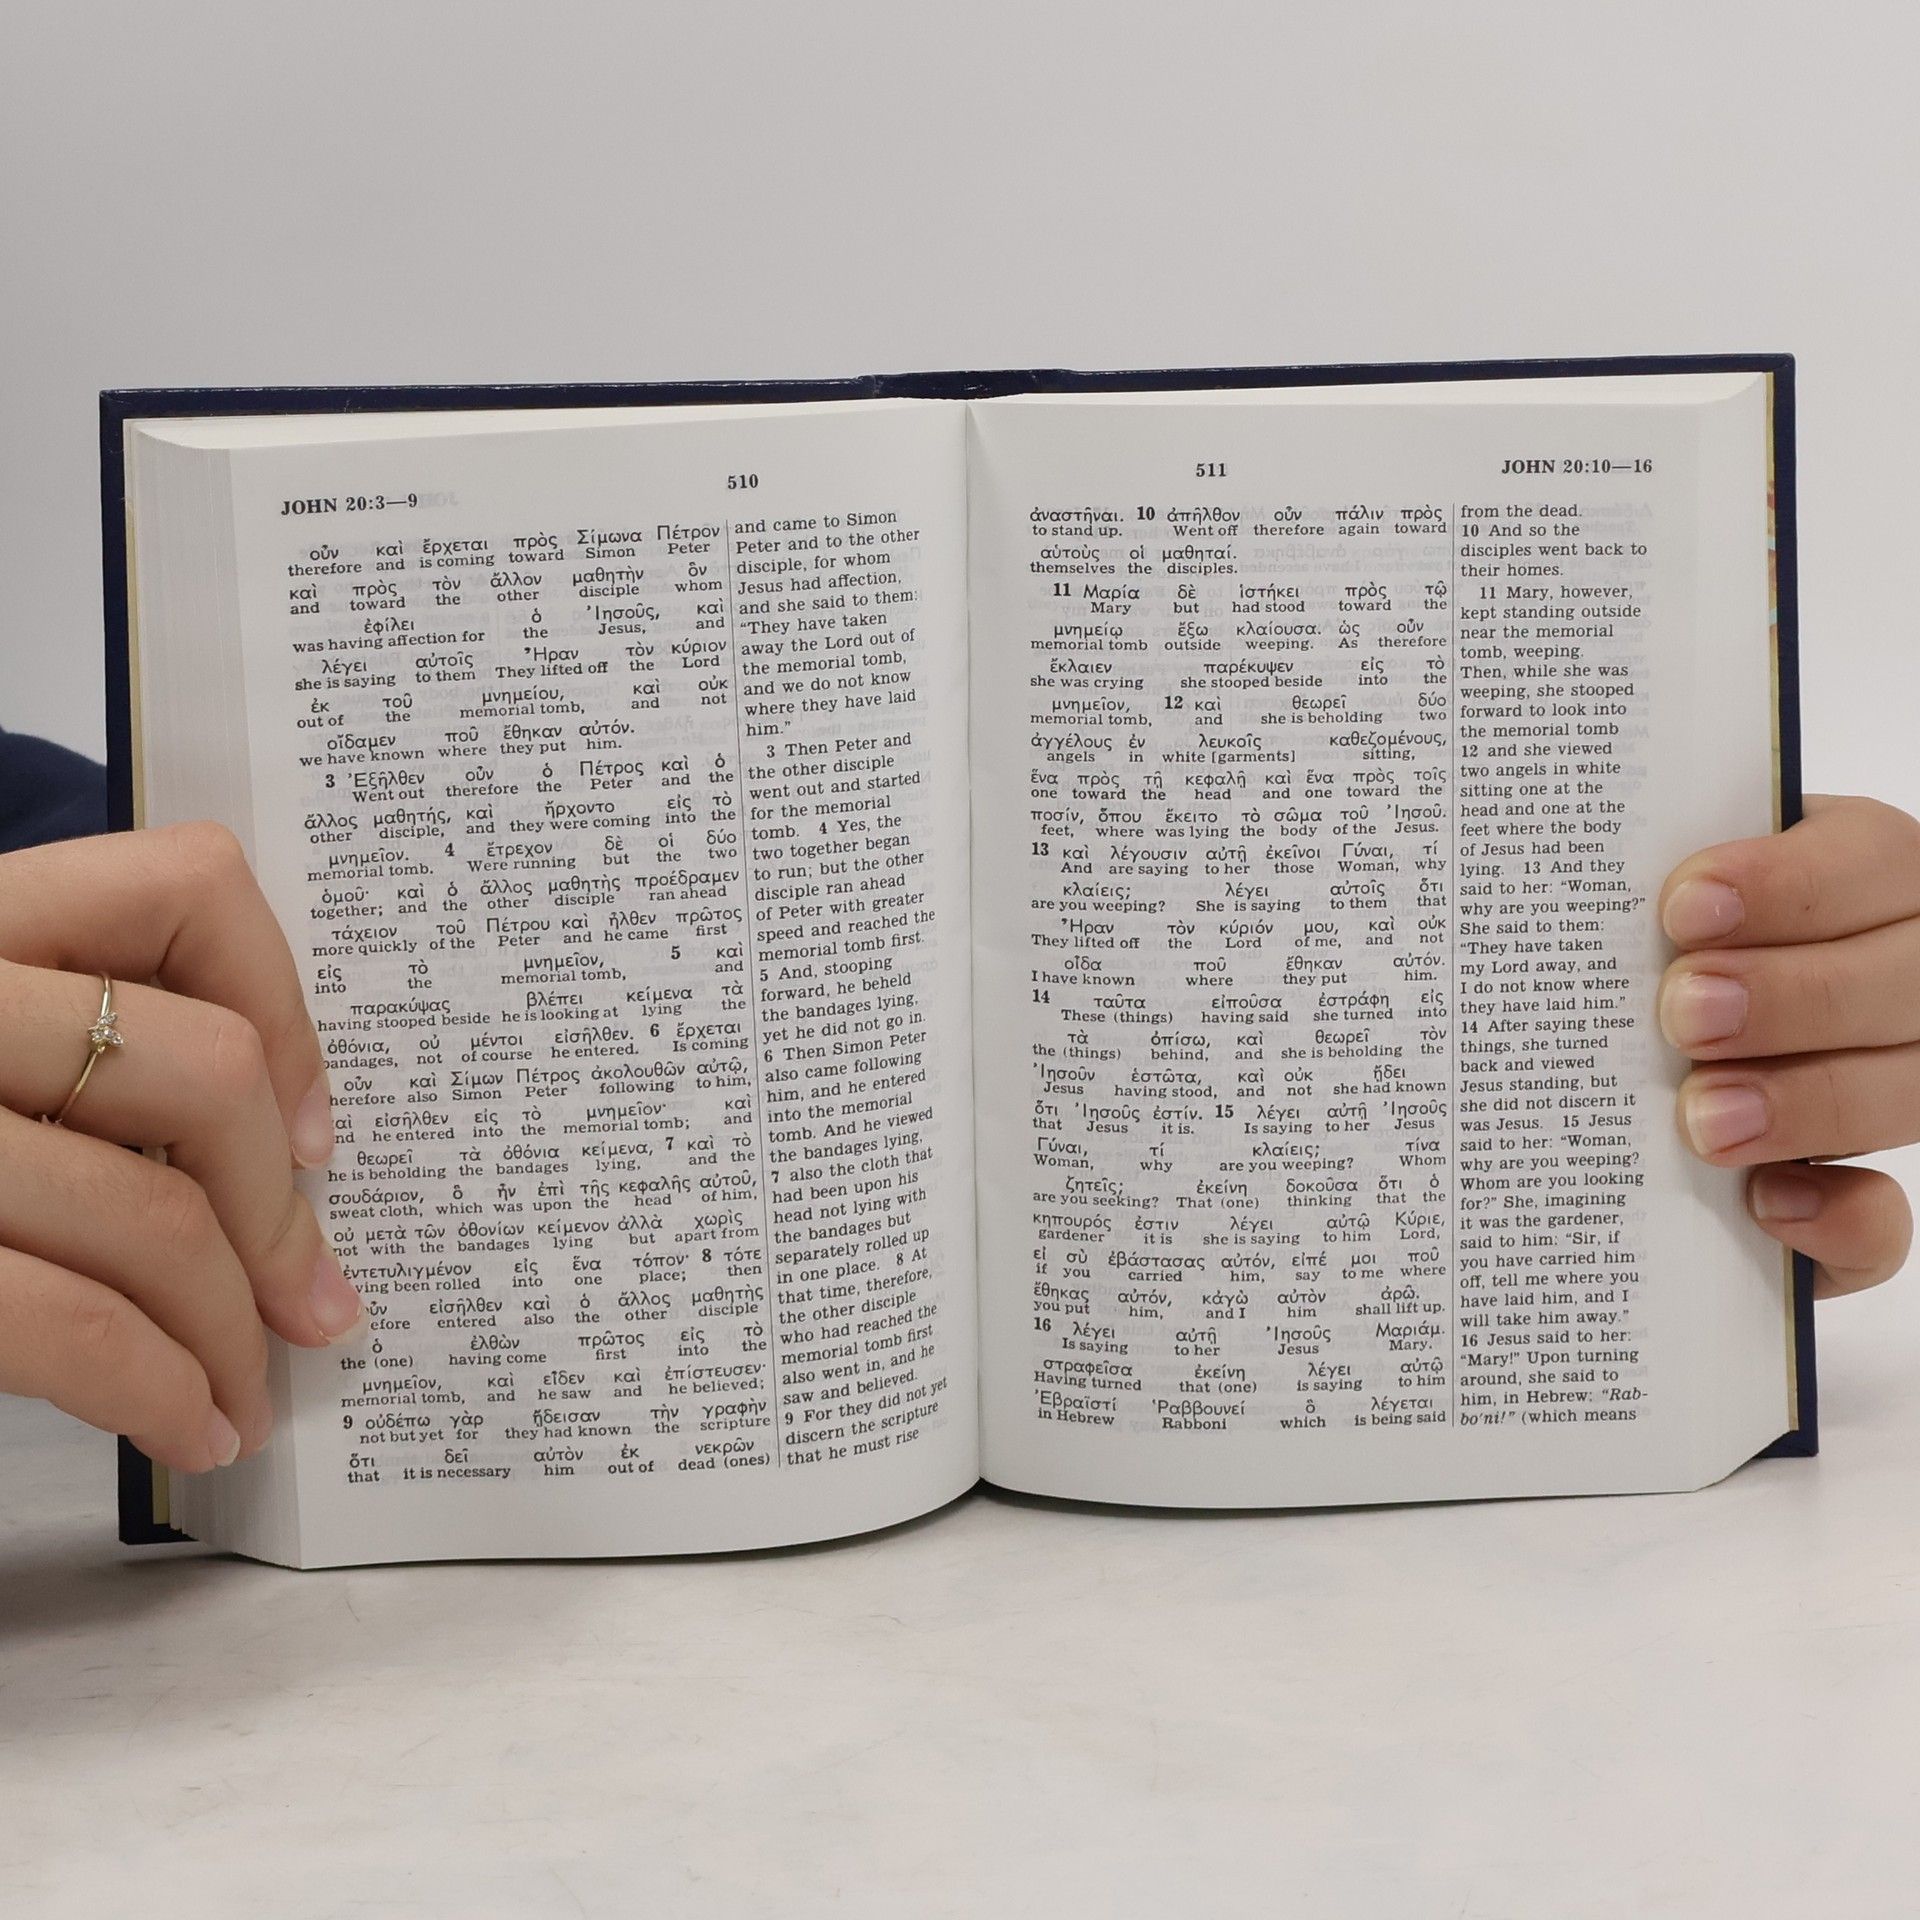 JOHN 20:3—9
510
οὖν καὶ ἔρχεται πρὸς Σίμωνα Πέτρον
therefore and is coming toward Simon Peter
καὶ πρὸς τὸν ἄλλον μαθητὴν ὃν
and toward the other disciple whom
ἐφίλει ὁ Ἰησοῦς, καὶ
was having affection for the Jesus, and
λέγει αὐτοῖς Ἦραν τὸν κύριον
she is saying to them They lifted off the Lord
ἐκ τοῦ μνημείου, καὶ οὐκ
out of the memorial tomb, and not
οἴδαμεν ποῦ ἔθηκαν αὐτόν.
we have known where they put him.
3 Ἐξῆλθεν οὖν ὁ Πέτρος καὶ ὁ
Went out therefore the Peter and the
ἄλλος μαθητής, καὶ ἤρχοντο εἰς τὸ
other disciple, and they were coming into the
μνημεῖον. 4 ἔτρεχον δὲ οἱ δύο
memorial tomb. Were running but the two
ὁμοῦ· καὶ ὁ ἄλλος μαθητὴς προέδραμεν
together; and the other disciple ran ahead
τάχειον τοῦ Πέτρου καὶ ἦλθεν πρῶτος
more quickly of the Peter and he came first
εἰς τὸ μνημεῖον, 5 καὶ
into the memorial tomb, and
παρακύψας βλέπει κείμενα τὰ
having stooped beside he is looking at lying the
ὀθόνια, οὐ μέντοι εἰσῆλθεν. 6 ἔρχεται
bandages, not of course he entered. Is coming
οὖν καὶ Σίμων Πέτρος ἀκολουθῶν αὐτῷ,
herefore also Simon Peter following to him,
αὶ εἰσῆλθεν εἰς τὸ μνημεῖον· καὶ
nd he entered into the memorial tomb; and
θεωρεῖ τὰ ὀθόνια κείμενα, 7 καὶ τὸ
he is beholding the bandages lying, and the
σουδάριον, ὃ ἦν ἐπὶ τῆς κεφαλῆς αὐτοῦ,
sweat cloth, which was upon the head of him,
οὐ μετὰ τῶν ὀθονίων κείμενον ἀλλὰ χωρὶς
not with the bandages lying but apart from
ἐντετυλιγμένον εἰς ἕνα τόπον· 8 τότε
ving been rolled into one place; then
οὖν εἰσῆλθεν καὶ ὁ ἄλλος μαθητὴς
efore entered also the other disciple
ὁ ἐλθὼν πρῶτος εἰς τὸ
the (one) having come first into the
μνημεῖον, καὶ εἶδεν καὶ ἐπίστευσεν·
memorial tomb, and he saw and he believed;
9 οὐδέπω γὰρ ᾔδεισαν τὴν γραφὴν
not but yet for they had known the scripture
ὅτι δεῖ αὐτὸν ἐκ νεκρῶν
that it is necessary him out of dead (ones)
and came to Simon
Peter and to the other
disciple, for whom
Jesus had affection,
and she said to them:
“They have taken
away the Lord out of
the memorial tomb,
and we do not know
where they have laid
him.”
3 Then Peter and
the other disciple
went out and started
for the memorial
tomb. 4 Yes, the
two together began
to run; but the other
disciple ran ahead
of Peter with greater
speed and reached the
memorial tomb first.
5 And, stooping
forward, he beheld
the bandages lying,
yet he did not go in.
6 Then Simon Peter
also came following
him, and he entered
into the memorial
tomb. And he viewed
the bandages lying,
7 also the cloth that
had been upon his
head not lying with
the bandages but
separately rolled up
in one place. 8 At
that time, therefore,
the other disciple
who had reached the
memorial tomb first
also went in, and he
saw and believed.
9 For they did not yet
discern the scripture
that he must rise
511
JOHN 20:10—16
ἀναστῆναι. 10 ἀπῆλθον οὖν πάλιν πρὸς
to stand up. Went off therefore again toward
αὑτοὺς οἱ μαθηταί.
themselves the disciples.
11 Μαρία δὲ ἱστήκει πρὸς τῷ
Mary but had stood toward the
μνημείῳ ἔξω κλαίουσα. ὡς οὖν
memorial tomb outside weeping. As therefore
ἔκλαιεν παρέκυψεν εἰς τὸ
she was crying she stooped beside into the
μνημεῖον, 12 καὶ θεωρεῖ δύο
memorial tomb, and she is beholding two
ἀγγέλους ἐν λευκοῖς καθεζομένους,
angels in white [garments] sitting,
ἕνα πρὸς τῇ κεφαλῇ καὶ ἕνα πρὸς τοῖς
one toward the head and one toward the
ποσίν, ὅπου ἔκειτο τὸ σῶμα τοῦ Ἰησοῦ.
feet, where was lying the body of the Jesus.
13 καὶ λέγουσιν αὐτῇ ἐκεῖνοι Γύναι, τί
And are saying to her those Woman, why
κλαίεις; λέγει αὐτοῖς ὅτι
are you weeping? She is saying to them that
Ἦραν τὸν κύριόν μου, καὶ οὐκ
They lifted off the Lord of me, and not
οἶδα ποῦ ἔθηκαν αὐτόν.
I have known where they put him.
14 ταῦτα εἰποῦσα ἐστράφη εἰς
These (things) having said she turned into
τὰ ὀπίσω, καὶ θεωρεῖ τὸν
the (things) behind, and she is beholding the
Ἰησοῦν ἑστῶτα, καὶ οὐκ ᾔδει
Jesus having stood, and not she had known
ὅτι Ἰησοῦς ἐστίν. 15 λέγει αὐτῇ Ἰησοῦς
that Jesus it is. Is saying to her Jesus
Γύναι, τί κλαίεις; τίνα
Woman, why are you weeping? Whom
ζητεῖς; ἐκείνη δοκοῦσα ὅτι ὁ
are you seeking? That (one) thinking that the
κηπουρός ἐστιν λέγει αὐτῷ Κύριε,
gardener it is she is saying to him Lord,
εἰ σὺ ἐβάστασας αὐτόν, εἰπέ μοι ποῦ
if you carried him, say to me where
ἔθηκας αὐτόν, κἀγὼ αὐτὸν ἀρῶ.
you put him, and I him shall lift up.
16 λέγει αὐτῇ Ἰησοῦς Μαριάμ.
Is saying to her Jesus Mary.
στραφεῖσα ἐκείνη λέγει αὐτῷ
Having turned that (one) is saying to him
Ἐβραϊστί Ῥαββουνεί ὃ λέγεται
in Hebrew Rabboni which is being said
from the dead.
10 And so the
disciples went back to
their homes.
11 Mary, however,
kept standing outside
near the memorial
tomb, weeping.
Then, while she was
weeping, she stooped
forward to look into
the memorial tomb
12 and she viewed
two angels in white
sitting one at the
head and one at the
feet where the body
of Jesus had been
lying. 13 And they
said to her: “Woman,
why are you weeping?”
She said to them:
“They have taken
my Lord away, and
I do not know where
they have laid him.”
14 After saying these
things, she turned
back and viewed
Jesus standing, but
she did not discern it
was Jesus. 15 Jesus
said to her: “Woman,
why are you weeping?
Whom are you looking
for?” She, imagining
it was the gardener,
said to him: “Sir, if
you have carried him
off, tell me where you
have laid him, and I
will take him away.”
16 Jesus said to her:
“Mary!” Upon turning
around, she said to
him, in Hebrew: “Rab-
bo′ni!” (which means